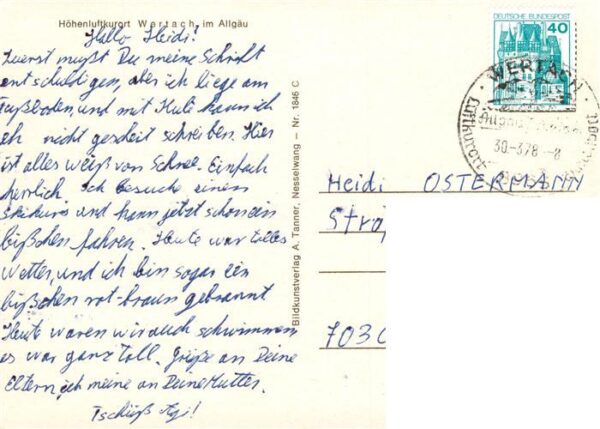 Höhenluftkurort Wertach im Allgäu
Hallo Heidi!
Zuerst mußt Du meine Schrift
entschuldigen, aber ich liege am
Fußboden, und mit Kuli kann ich
eh nicht gescheit schreiben. Hier
ist alles weiß von Schnee. Einfach
herrlich. Ich besuche einen
Skikurs und kann jetzt schon ein
bißchen fahren. Heute war tolles
Wetter, und ich bin sogar ein
bißchen rot-braun gebrannt
Heute waren wir auch schwimmen
es war ganz toll. Grüße an Deine
Eltern, ich meine an Deine Mutter.
Tschüß
Bildkunstverlag A. Tanner, Nesselwang – Nr. 1846 C
DEUTSCHE BUNDESPOST
40
WERTACH
30.-3.78.-8
Heidi OSTERMANN
7030